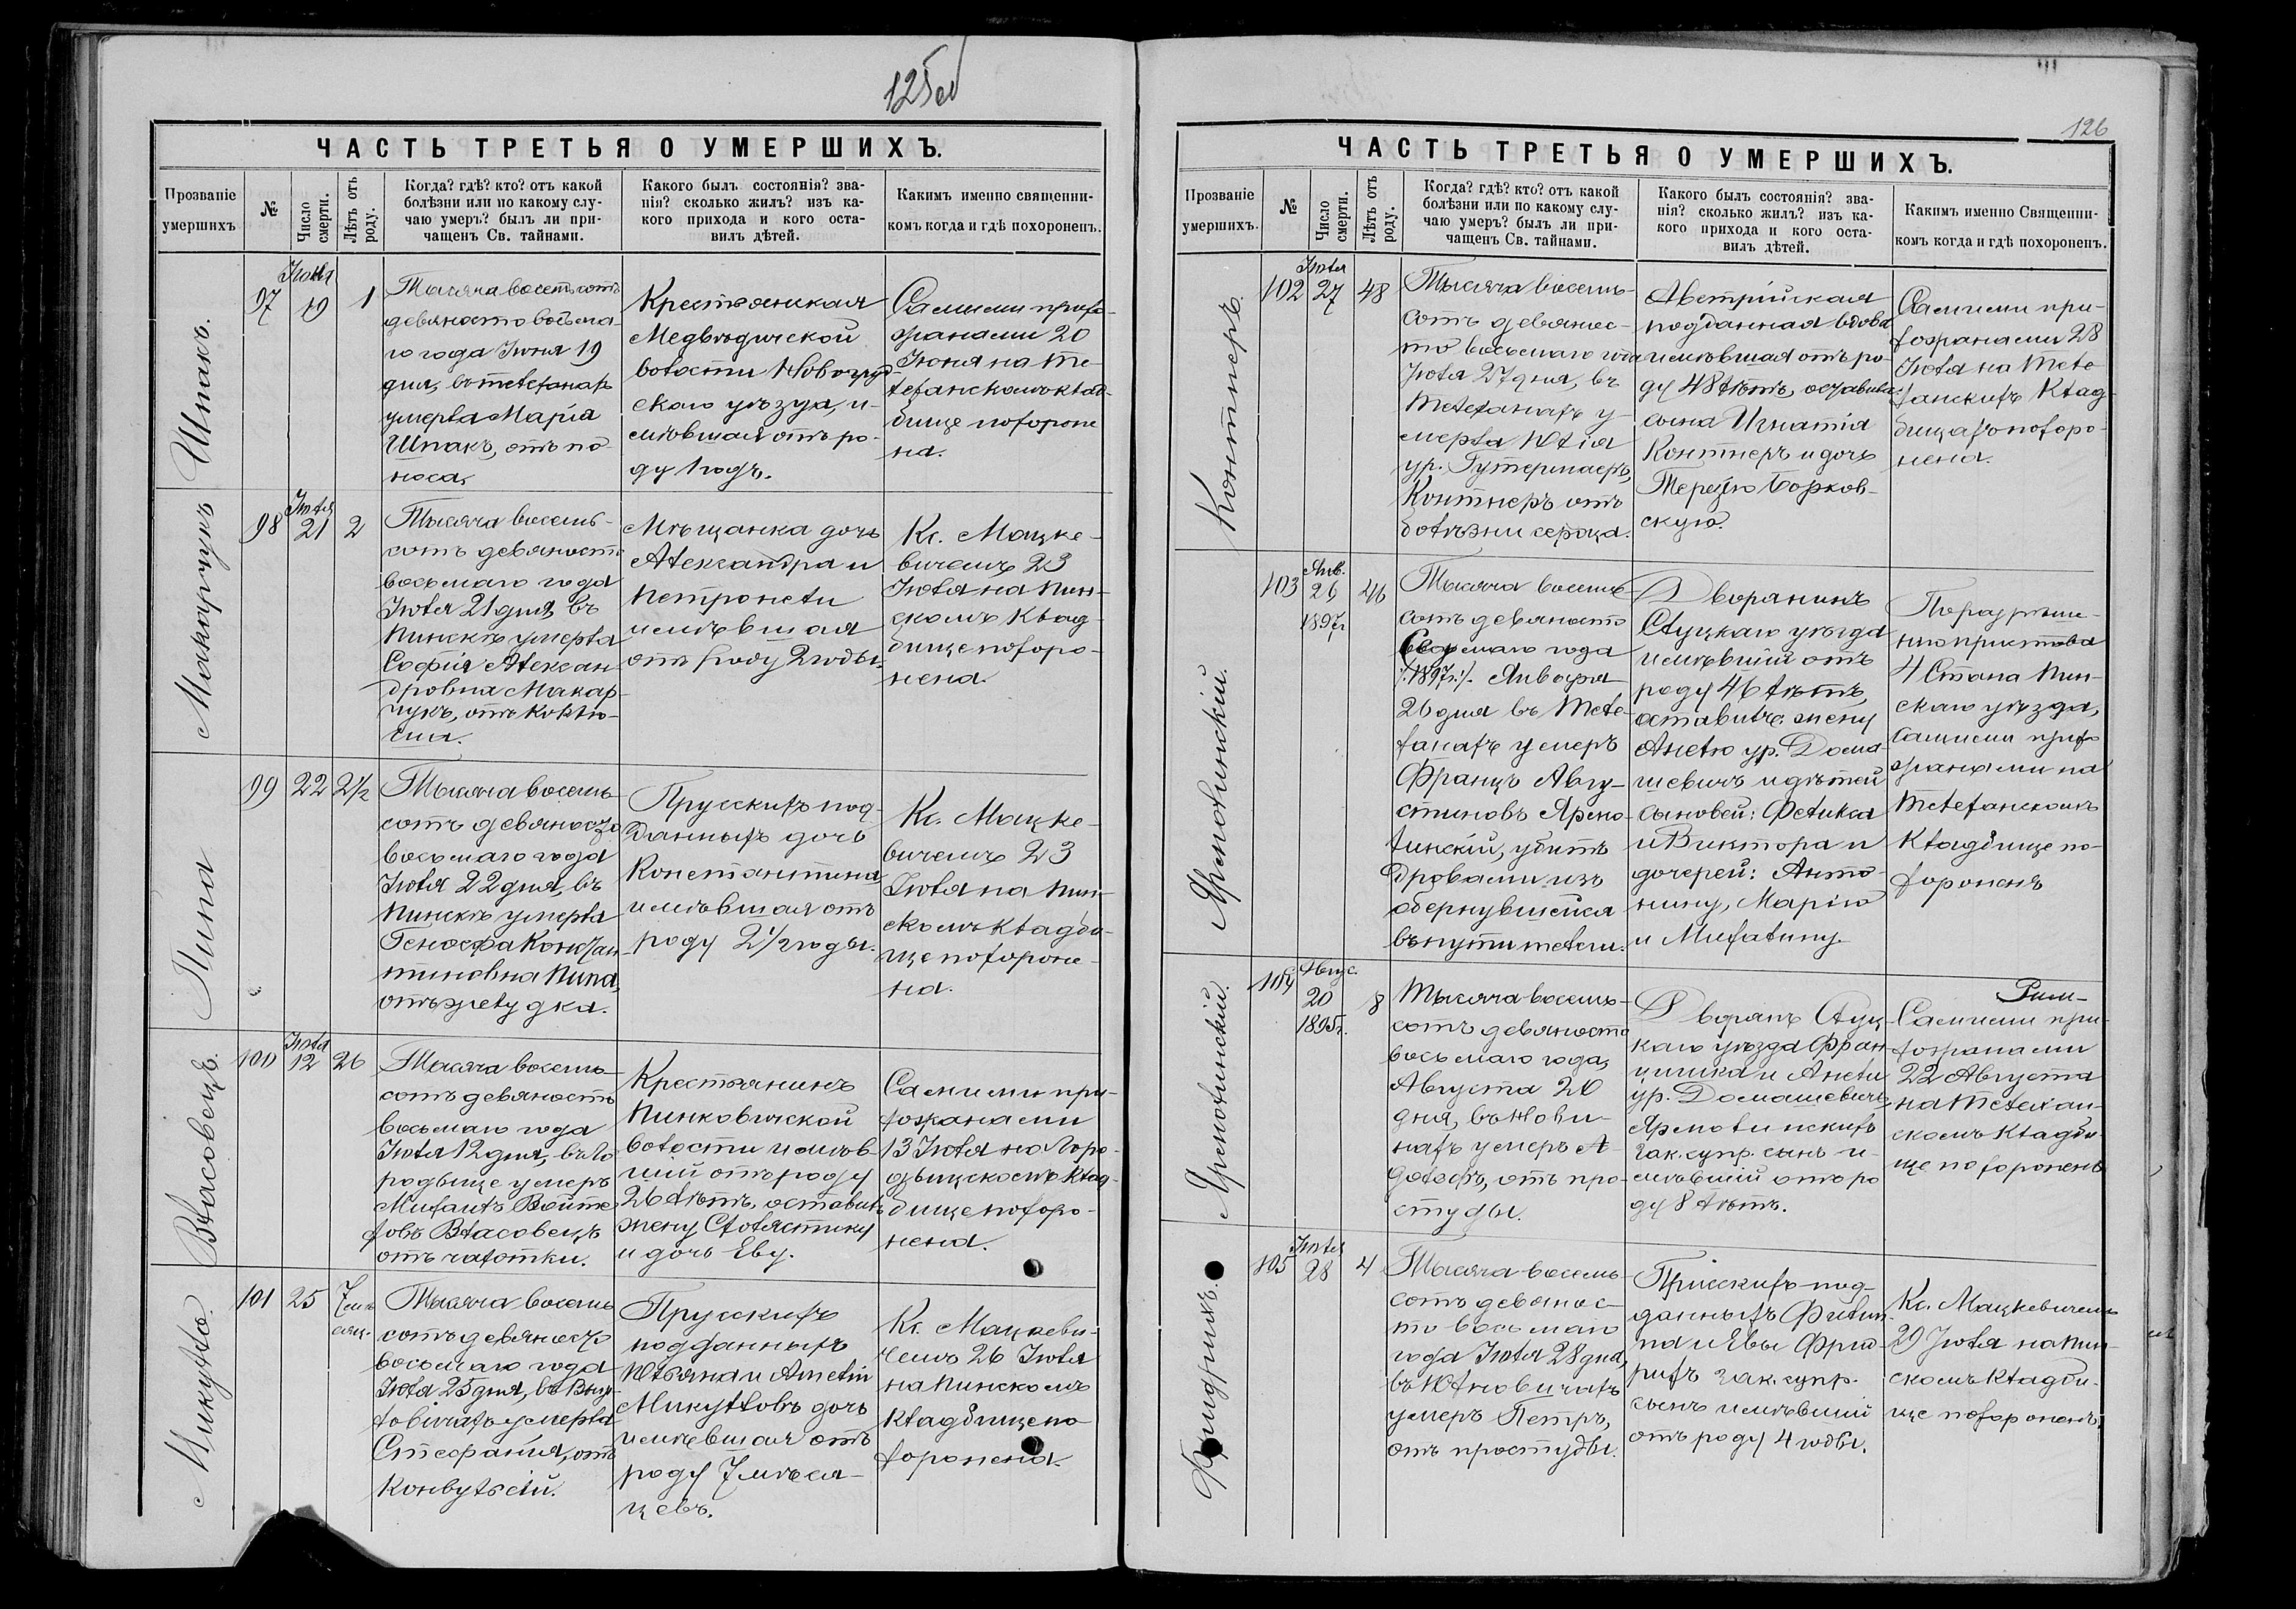 125об
ЧАСТЬ ТРЕТЬЯ О УМЕРШИХЪ.
Прозваніе
умершихъ
№
Число
смерти.
Лѣтъ отъ
роду.
Когда? гдѣ? кто? отъ какой
болѣзни или по какому слу-
чаю умеръ? былъ ли при-
чащенъ Св. тайнами.
Какого былъ состоянія? зва-
нія? сколько жилъ? изъ ка-
кого прихода и кого оста-
вилъ дѣтей.
Какимъ именно священни-
комъ когда и гдѣ похороненъ.
Шпакъ.
97
19
1
Тысяча восемьсотъ
девяносто восьма-
го года Іюня 19
дня, въ Телеханах
умерла Марія
Шпакъ, отъ по-
носа.
Крестьянская
Медвѣдичской
волости Новогруд-
скаго уѣзда, и-
мѣвшая отъ ро-
ду 1 годъ.
Самими прихо-
жанами 20
Іюня на Те-
леханскомъ клад-
бище похороне
на.
Макарчукъ
98
Іюля
21
2
Тысяча восемь-
сотъ девяносто
восьмаго года
Іюля 21 дня, въ
Пинскѣ умерла
Софія Алексан-
дровна Макар-
чукъ, отъ коклю-
ша.
Мѣщанка дочь
Александра и
Петронели
имѣвшая
отъ роду 2 годы.
Кс. Мацке-
вичемъ 23
Іюля на Пин-
скомъ клад-
бище похоро-
нена.
Пипа
99
22
2 1/2
Тысяча восемь
сотъ девяносто
восьмаго года
Іюля 22 дня, въ
Пинскѣ умерла
Генофа Констан
тиновна Пипа,
отъ желудка.
Прусскихъ под-
данныхъ дочь
Константина
имѣвшая отъ
роду 2 1/2 годы.
Кс. Мацке-
вичемъ 23
Іюля на Пин-
скомъ кладби-
ще похороне-
на.
Власовецъ.
100
Іюля
12
26
Тысяча восемь-
сотъ девяносто
восьмаго года
Іюля 12 дня, въ Го
родыще умеръ
Михаилъ Войте
ховъ Власовецъ
отъ чахотки.
Крестьянинъ
Пинковичской
волости имѣв-
шій отъ роду
26 лѣтъ, оставилъ
жену Схолястику
и дочь Еву.
Самими при-
хожанами
13 Іюля на Горо-
дыщскомъ клад-
бище похоро-
нена.
Микутло.
101
25
7 мѣ-
сяц.
Тысяча восемь
сотъ девяносто
восьмаго года
Іюля 25 дня, въ Выл-
ловичахъ умерла
Стефанія, отъ
конвульсій.
Прусскихъ
подданныхъ
Юльяна и Амелій
Микутловъ дочь
имѣвшая отъ
роду 7 мѣся-
цевъ.
Кс. Мацкеви-
чемъ 26 Іюля
на Пинскомъ
кладбище по
хоронена.
126
ЧАСТЬ ТРЕТЬЯ О УМЕРШИХЪ.
Прозваніе
умершихъ.
№
Число
смерти.
Лѣтъ отъ
роду.
Когда? гдѣ? кто? отъ какой
болѣзни или по какому слу-
чаю умеръ? былъ ли при-
чащенъ Св. тайнами.
Какого былъ состоянія? зва-
нія? сколько жилъ? изъ ка-
кого прихода и кого оста-
вилъ дѣтей.
Какимъ именно Священни-
комъ когда и гдѣ похороненъ.
Контнеръ.
102
Іюля
27
48
Тысяча восемь-
сотъ девянос-
то восьмаго года
Іюля 27 дня, въ
Телеханахъ у-
мерла Юлія
ур. Гутермаеръ,
Контнеръ отъ
болѣзни сердца.
Австрійская
подданная вдова
имѣвшая отъ ро-
ду 48 лѣтъ, оставила
сына Игнатія
Контнеръ и дочь
Терезію Борков-
скую.
Самими при-
хожанами 28
Іюля на Теле
ханскихъ клад-
бищахъ похоро-
нена.
Ярмолинскій.
103
Янв.
26
1897г
46
Тысяча восемь-
сотъ девяносто
Седьмаго года
/:1897г:/. Января
26 дня въ Теле-
ханахъ умеръ
Францъ Авгу-
стиновъ Ярмо-
линскій, убитъ
дровами изъ
обернувшейся
въ пути телеги.
Дворянинъ
Слуцкаго уѣзда
имѣвшій отъ
роду 46 лѣтъ,
оставилъ жену
Анелю ур. Дома-
шевичъ и дѣтей
сыновей: Феликса
и Виктора и
дочерей: Анто-
нину, Марію
и Михалину.
По разрѣше-
нію пристава
4 Стана Пин-
скаго уѣзда,
Самими прихо
жанами на
Телеханскомъ
кладбище по-
хороненъ
Ярмолинскій.
104
Авгус.
20
1895г.
8
Тысяча восемь-
сотъ девяносто
восьмаго года,
Августа 20
дня, въ Нови-
нахъ умеръ А-
дольфъ, отъ про-
студы.
Дворянъ Слуц-
каго уѣзда Фран
цишка и Анели
ур. Домашевичъ,
Ярмолинскихъ
зак. супр. сынъ и-
мѣвшій отъ ро
ду 8 лѣтъ.
Самими при-
хожанами
22 Августа
на Телехан-
скомъ кладби-
ще похороненъ
Фридрихъ.
105
Іюля
28
4
Тысяча восемь-
сотъ девянос-
то восьмаго
года Іюля 28 дня,
въ Юльновичахъ
умеръ Петръ,
отъ простуды.
Прусскихъ под-
данныхъ Филип-
па и Евы Фрид-
рихъ зак. супр.
сынъ имѣвшій
отъ роду 4 годы.
Кс. Мацкевичемъ
29 Іюля на Пин-
скомъ кладби-
ще похороненъ.